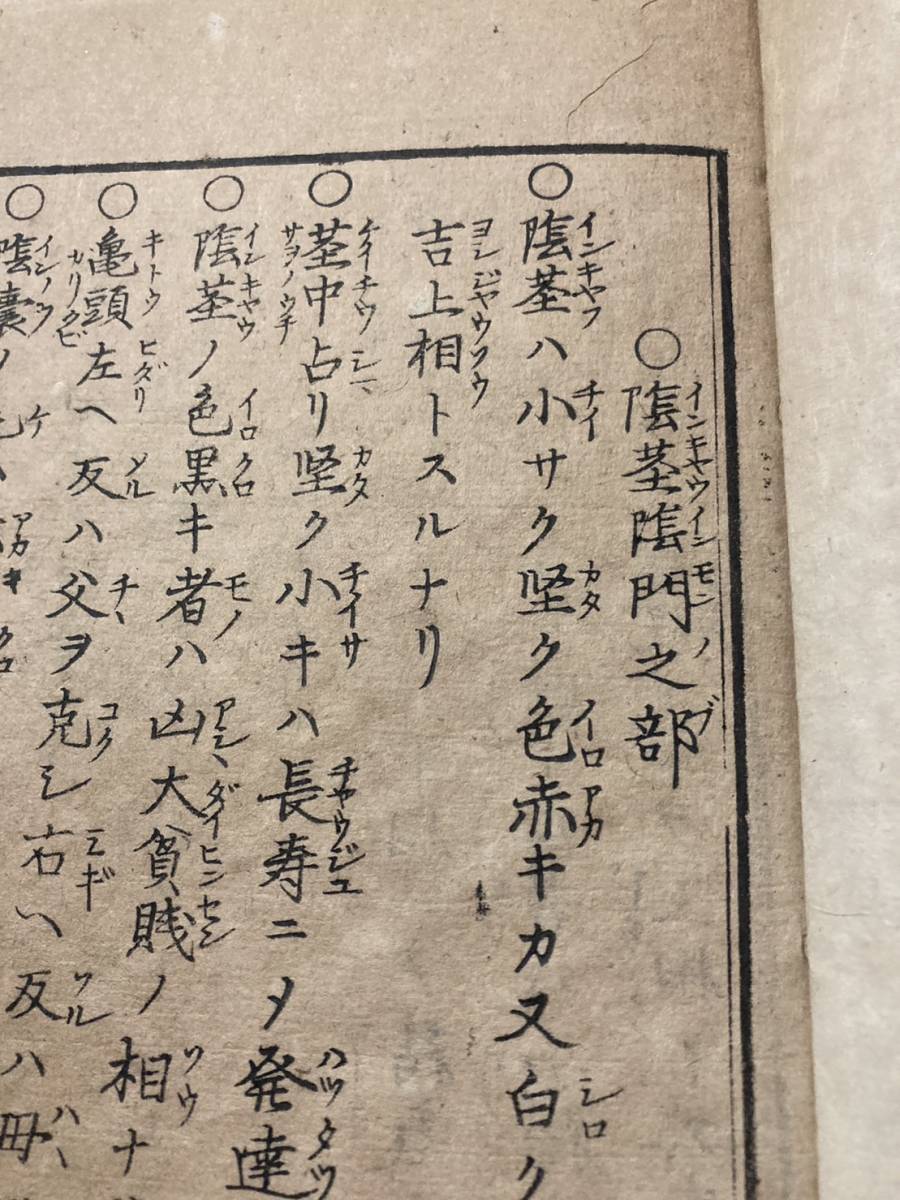 ○陰茎陰門之部
○陰茎ハ小サク堅ク色赤キカ又白ク
吉上相トスルナリ
○茎中占リ堅ク小キハ長寿ニメ発達
○陰茎ノ色黒キ者ハ凶大貧賎ノ相ナ
○亀頭左ヘ反ハ父ヲ克シ右ヘ反ハ毋
○陰嚢ノ